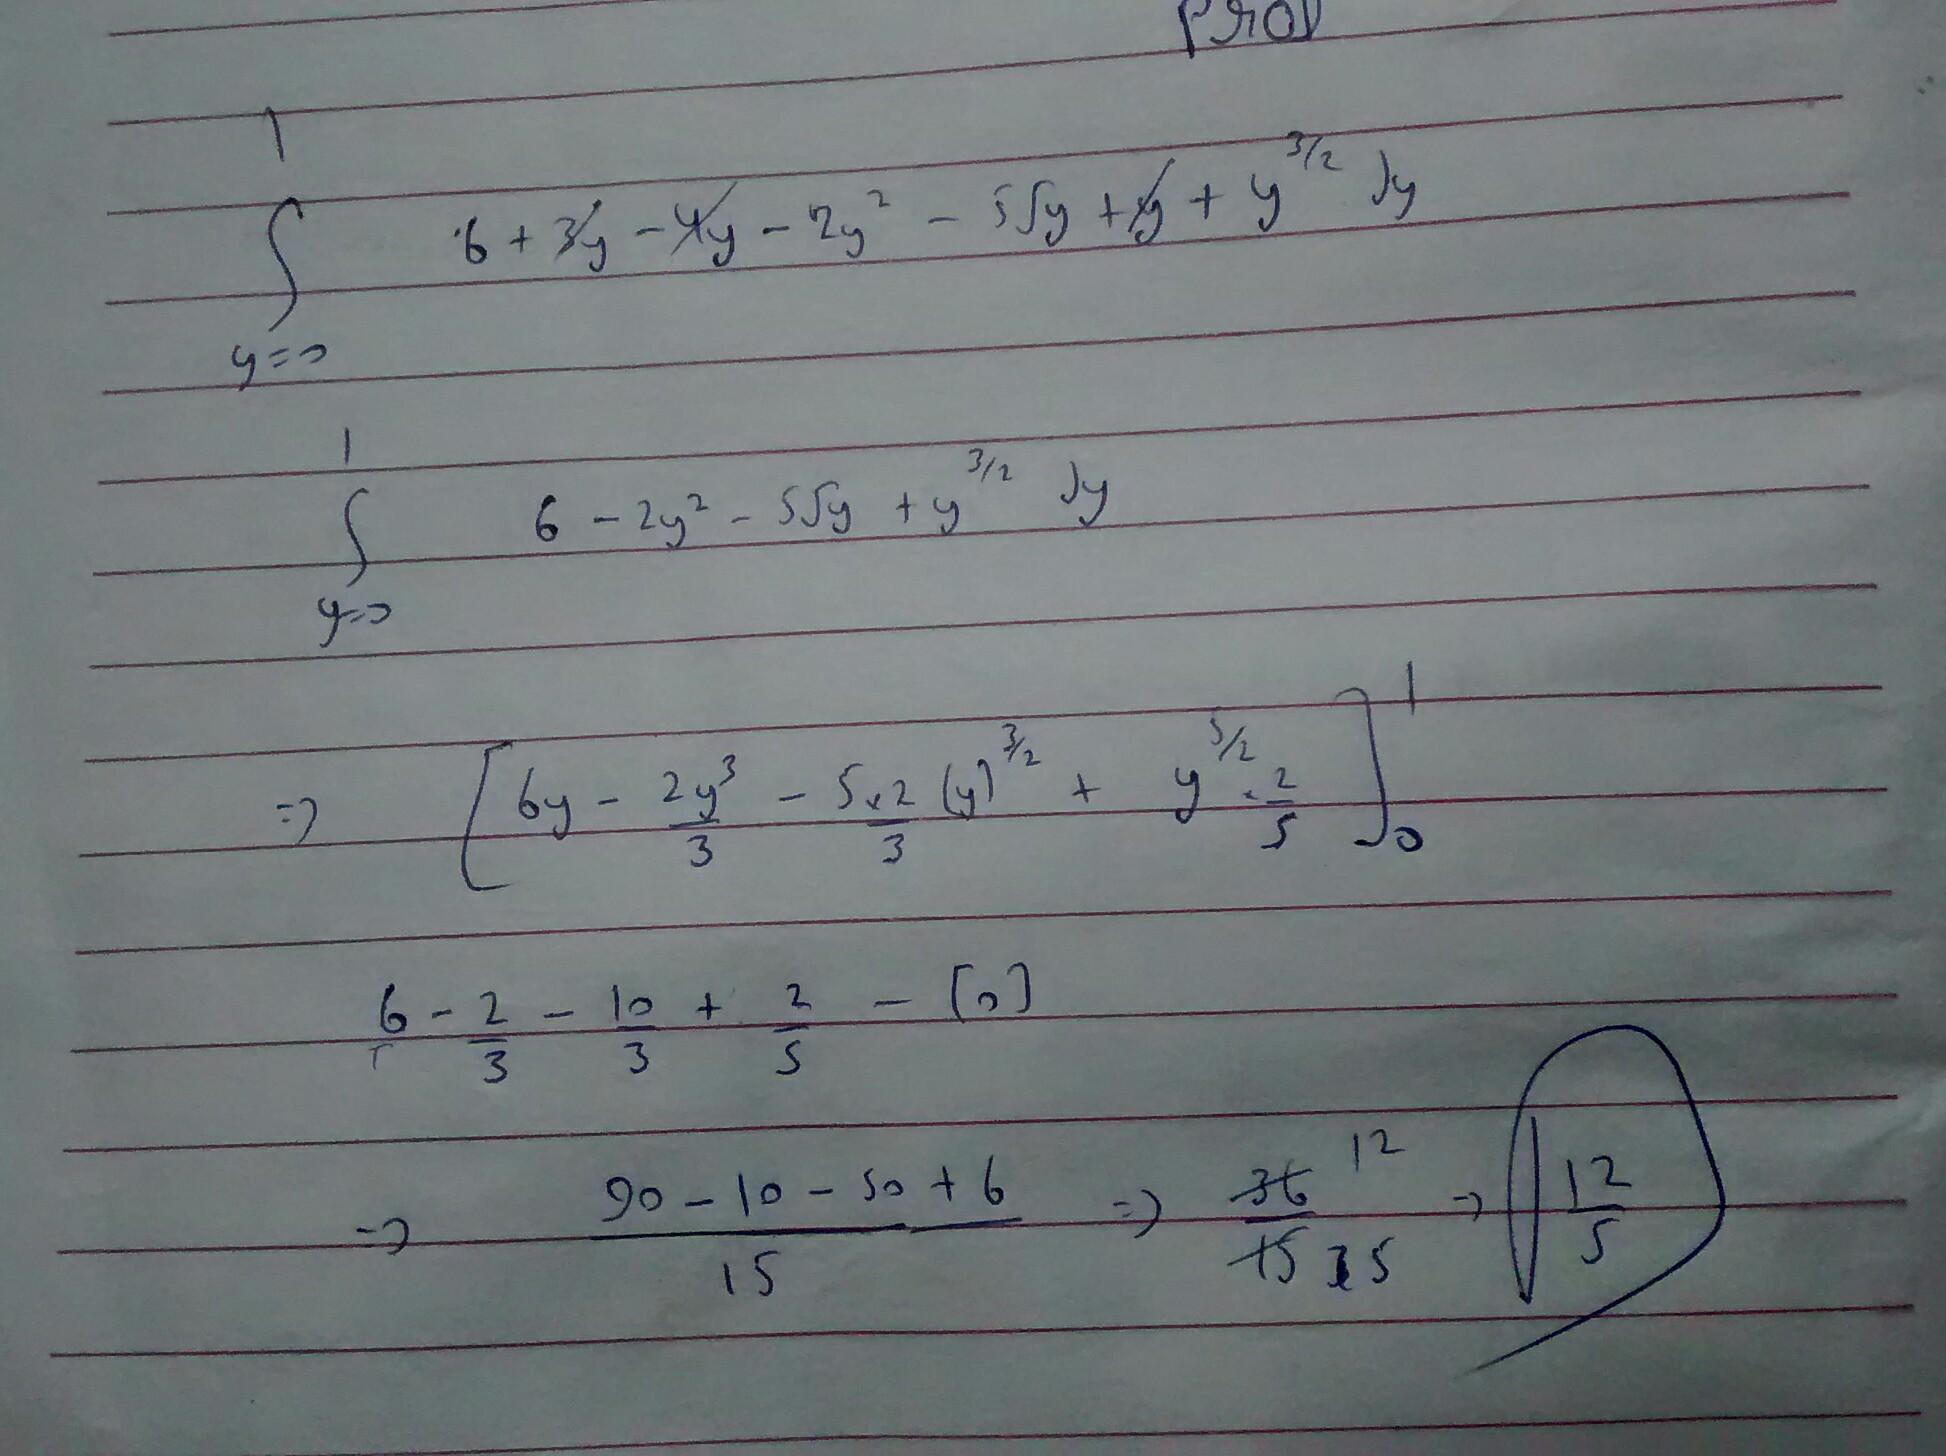 1
∫ 6 + 3y - 4y - 2y² - 5√y + y + y^3/2 dy
y=0
1
∫ 6 - 2y² - 5√y + y^3/2 dy
y=0
=> [6y - 2y³/3 - 5×2/3 (y)^3/2 + y^5/2 · 2/5]₀¹
6 - 2/3 - 10/3 + 2/5 - [0]
=> 90 - 10 - 50 + 6 / 15 => 36/15 12/5 => 12/5